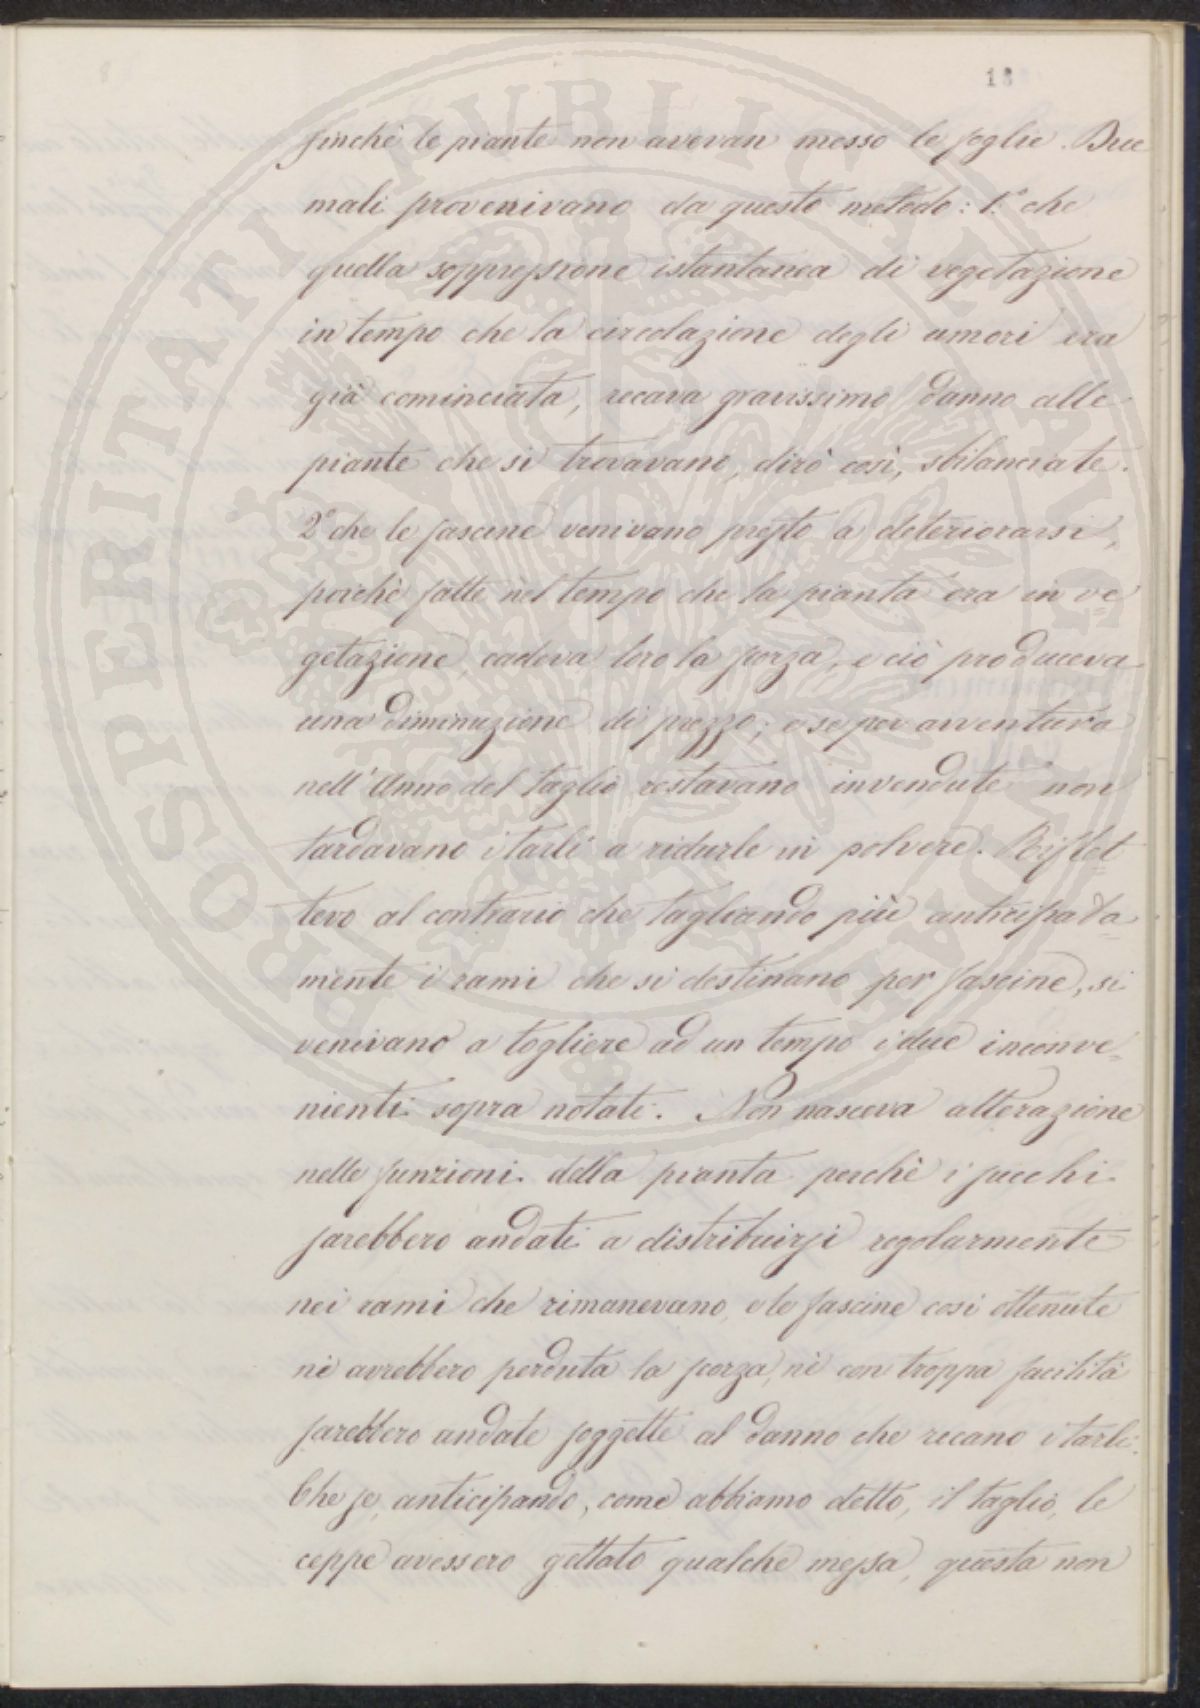 13
finchè le piante non avevan messo le foglie. Due
mali provenivano da questo metodo: 1.° che
quella soppressione istantanea di vegetazione
in tempo che la circolazione degli umori era
già cominciata, recava gravissimo danno alle
piante che si trovavano, dirò così, sbilanciate.
2.° che le fascine venivano presto a deteriorarsi,
poichè fatte nel tempo che la pianta era in ve
getazione, cadeva loro la forza, e ciò produceva
una diminuzione di prezzo; e se per avventura
nell'Anno del taglio restavano invendute non
tardavano i tarli a ridurle in polvere. Riflet
tevo al contrario che tagliando più anticipata=
mente i rami che si destinano per fascine, si
venivano a togliere ad un tempo i due inconve=
nienti sopra notati. Non nasceva alterazione
nelle funzioni della pianta perchè i succhi
sarebbero andati a distribuirsi regolarmente
nei rami che rimanevano, e le fascine così ottenute
nè avrebbero perduta la forza, nè con troppa facilità
sarebbero andate soggette al danno che recano i tarli.
Che se, anticipando, come abbiamo detto, il taglio, le
ceppe avessero gettato qualche messa, questa non
PROSPERITATI PUBLICAE AUGENDAE